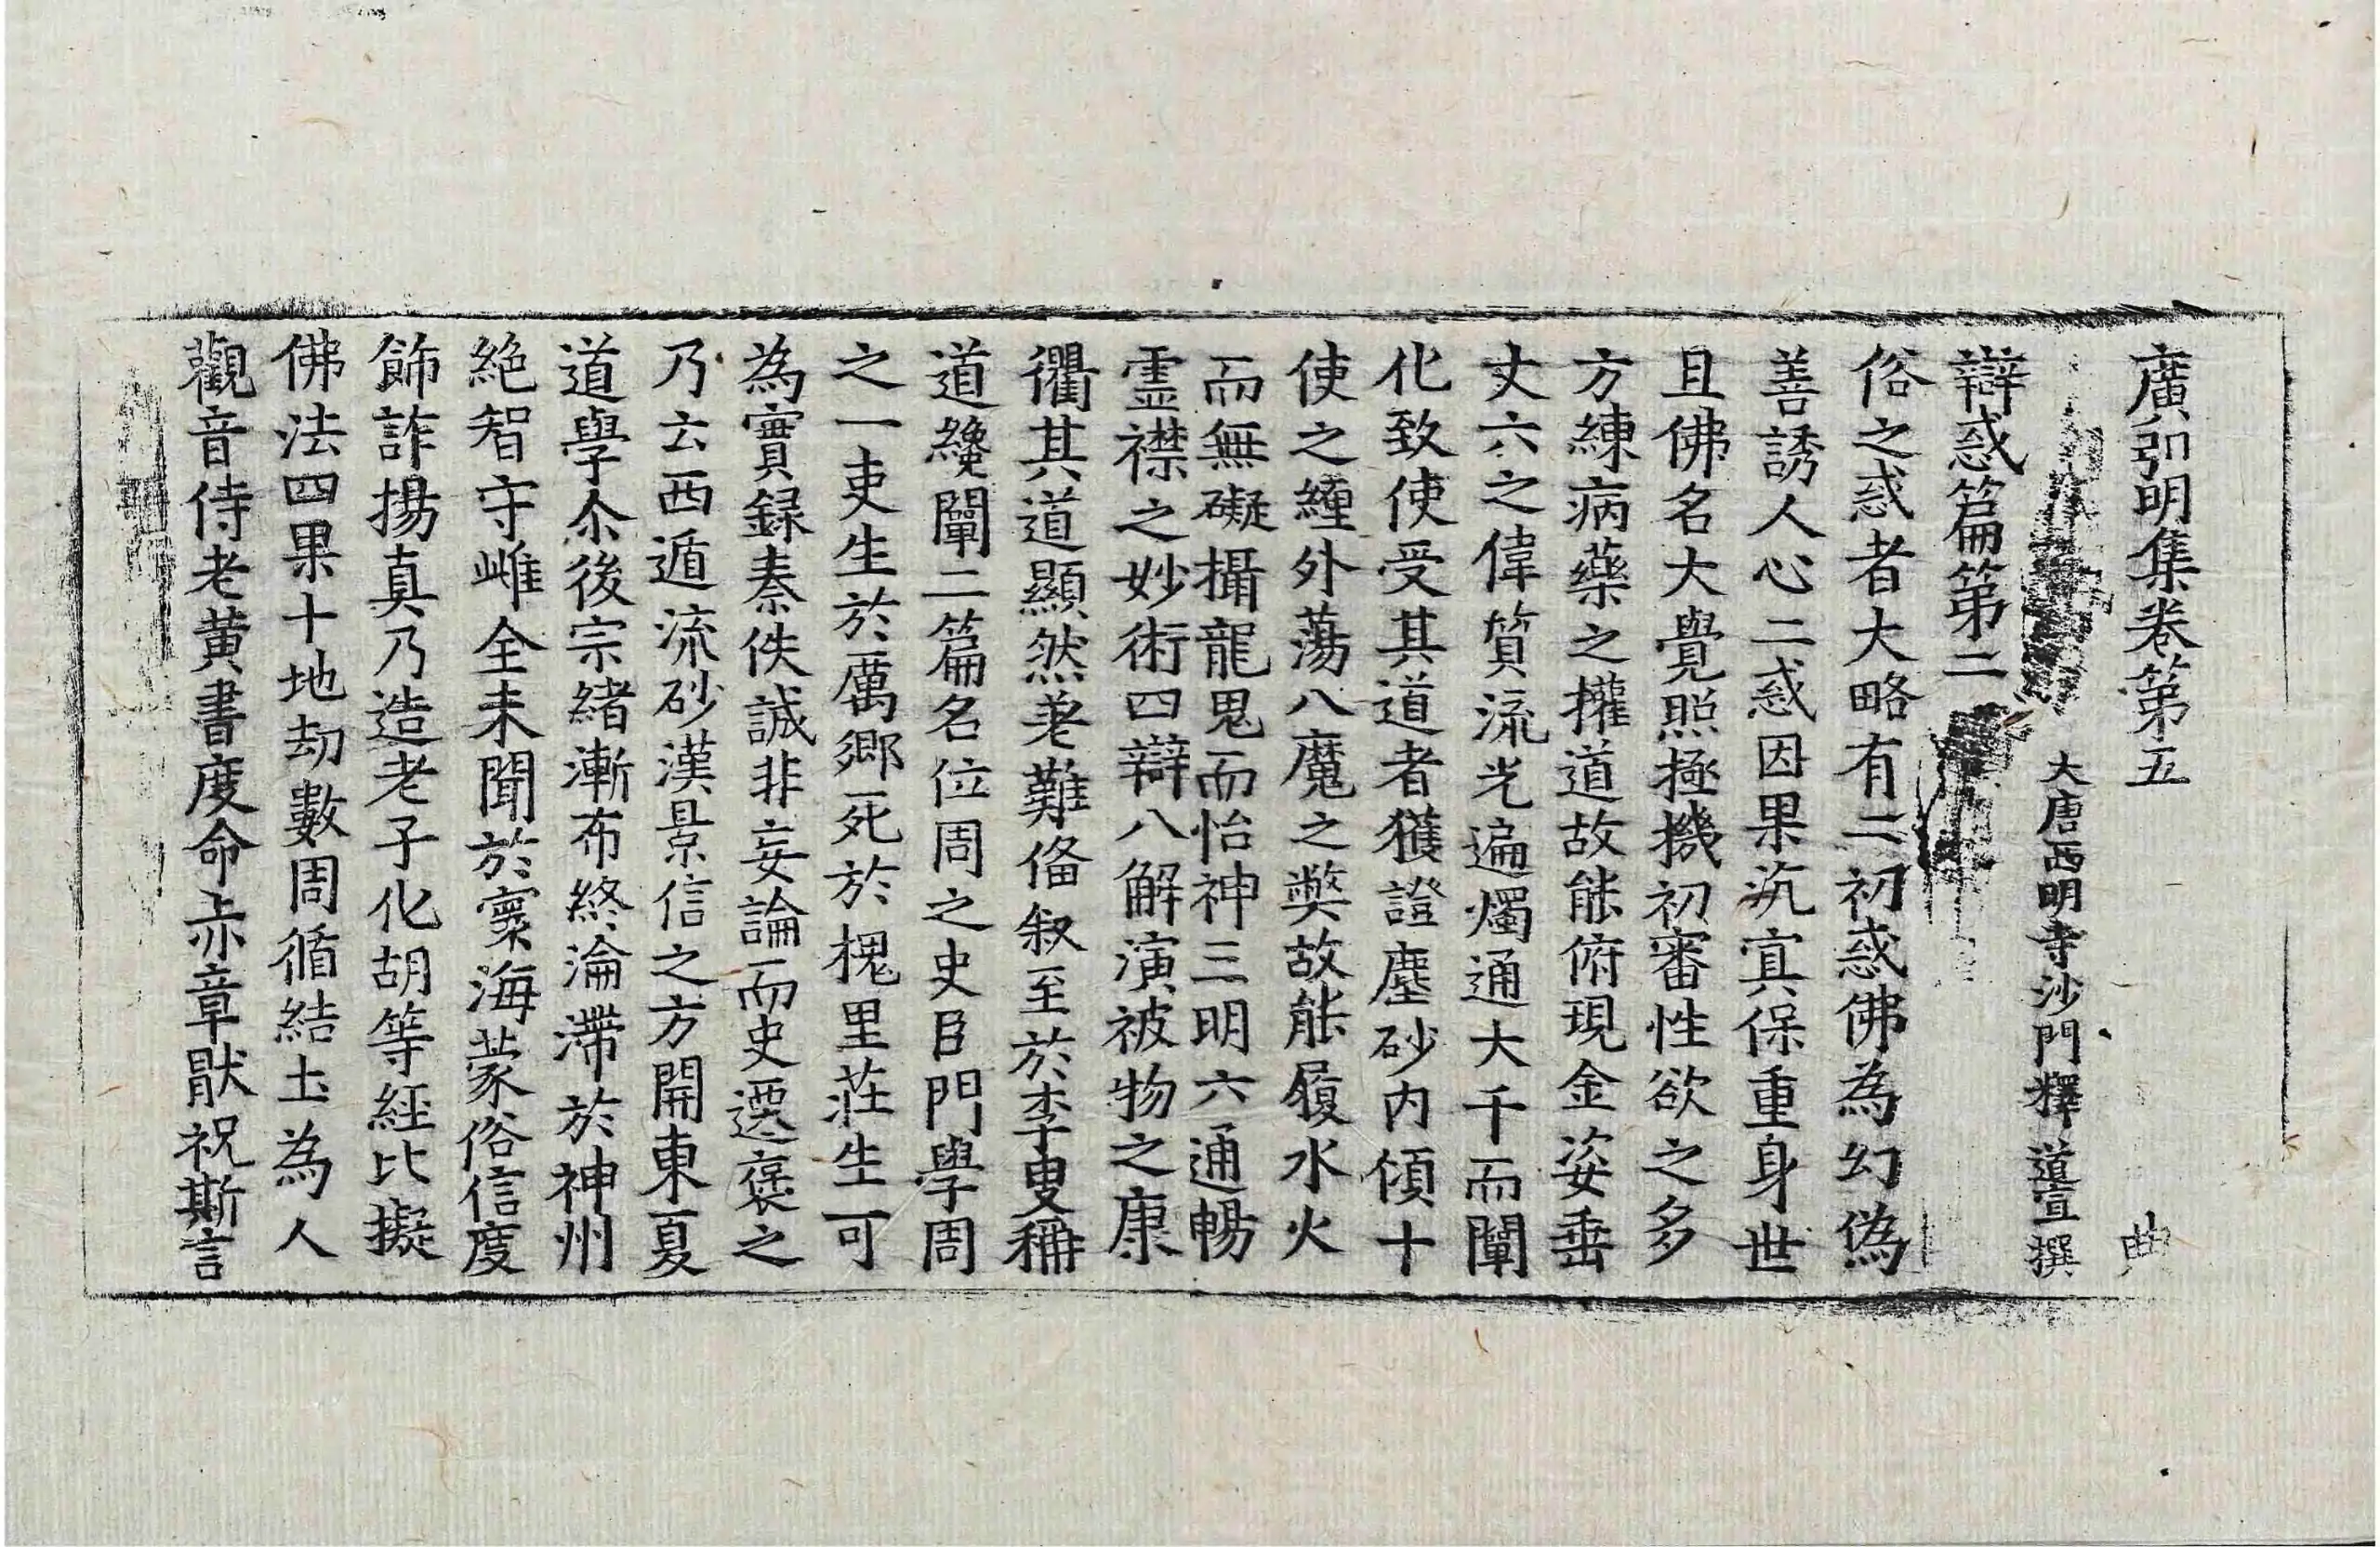 廣弘明集卷第五 典
大唐西明寺沙門釋道宣撰
辯惑篇第二
俗之惑者大略有二初惑佛為幻偽
善誘人心二惑因果沉冥保重身世
且佛名大覺照極機初審性欲之多
方練病藥之權道故能俯現金姿垂
丈六之偉質流光遍燭通大千而闡
化致使受其道者獲證塵砂內傾十
使之纏外蕩八魔之弊故能履水火
而無礙攝龍鬼而怡神三明六通暢
靈襟之妙術四辯八解演被物之康
衢其道顯然差難俻叙至於李叟稱
道纔闡二篇名位周之史臣門學周
之一吏生於厲鄉死於槐里莊生可
為實録秦佚誠非妄論而史遷褒之
乃云西遁流砂漢景信之方開東夏
道學尒後宗緒漸布終淪滯於神州
絶智守雌全未聞於寰海蒙俗信度
飾詐揚真乃造老子化胡等經比擬
佛法四果十地劫數周循結土為人
觀音侍老黄書度命赤章猒祝斯言